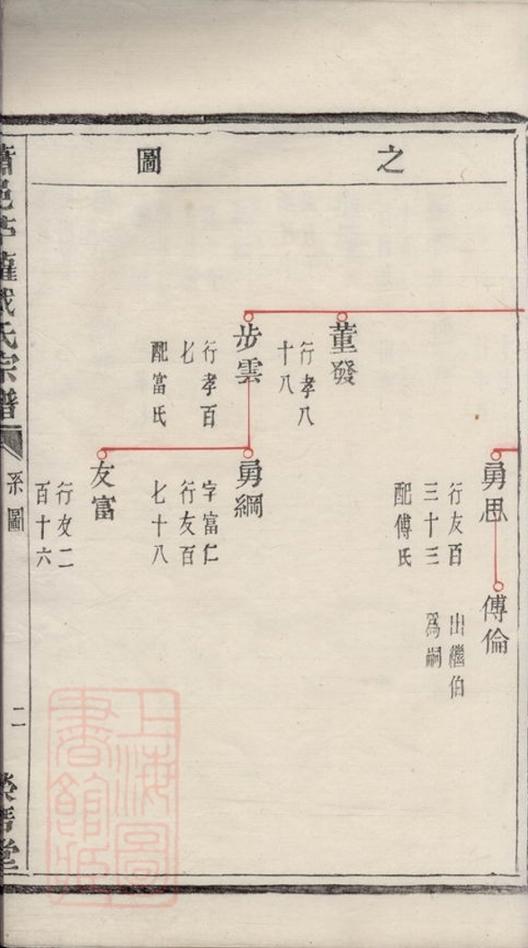 之
圖
董發
行孝八
十八
步雲
行孝百
七
配富氏
勇思
行友百
三十三
配傅氏
傅倫
出繼伯
為嗣
勇綱
字富仁
行友百
七十八
友富
行友二
百十六
氏宗譜
系圖
二
上海圖
書館藏